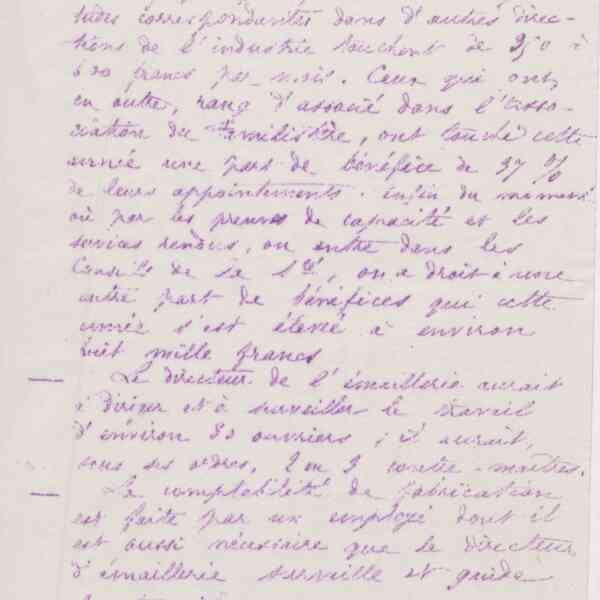 tudes correspondantes dans d'autres direc-
tions de l'industrie touchent de 250 à
600 francs par mois. Ceux qui ont,
en outre, rang d'associé dans l'Asso-
ciation du Familistère, ont touché cette
année une part de bénéfice de 37 %
de leurs appointements. Enfin du moment
où par les preuves de capacité et les
services rendus, on entre dans les
Conseils de la Sté, on a droit à une
autre part de bénéfices qui cette
année s'est élevée à environ
huit mille francs
— Le directeur de l'émaillerie aurait
à diriger et à surveiller le travail
d'environ 80 ouvriers ; il aurait,
sous ses ordres, 2 ou 3 contre-maîtres.
— La comptabilité de fabrication
est faite par un employé dont il
est aussi nécessaire que le directeur
d'émaillerie surveille et guide